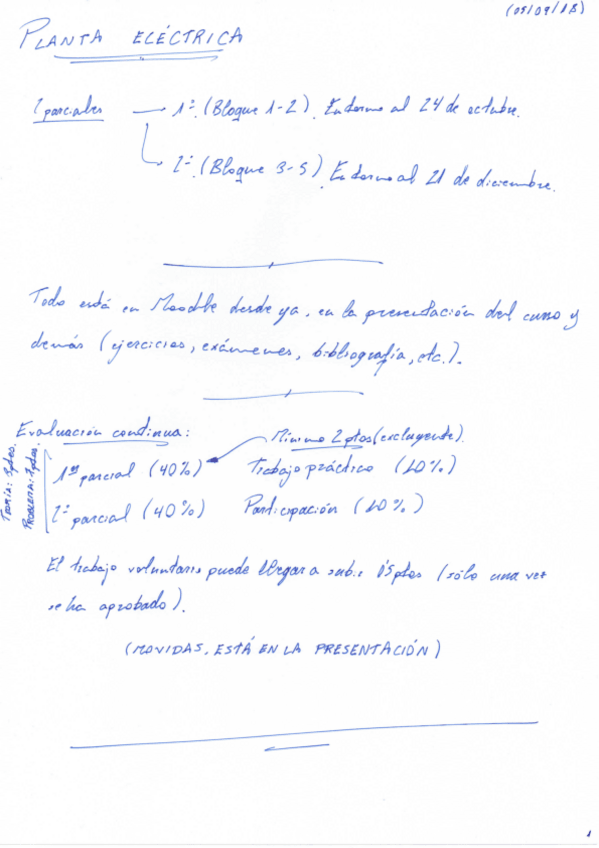 (05/09/18)
PLANTA ELÉCTRICA
2 parciales → 1º. (Bloque 1-2). En torno al 24 de octubre.
2º. (Bloque 3-5). En torno al 21 de diciembre.
Todo está en Moodle desde ya, en la presentación del curso y
demás (ejercicios, exámenes, bibliografía, etc.).
Evaluación continua:
Mínimo 2 ptos (excluyente).
TEORÍA: 3 ptos.
PROBLEMA: 7 ptos.
1er parcial (40%) Trabajo práctico (10%)
2º parcial (40%) Participación (10%)
El trabajo voluntario puede llegar a subir 0'5 ptos (sólo una vez
se ha aprobado).
(MOVIDAS, ESTÁ EN LA PRESENTACIÓN)
1